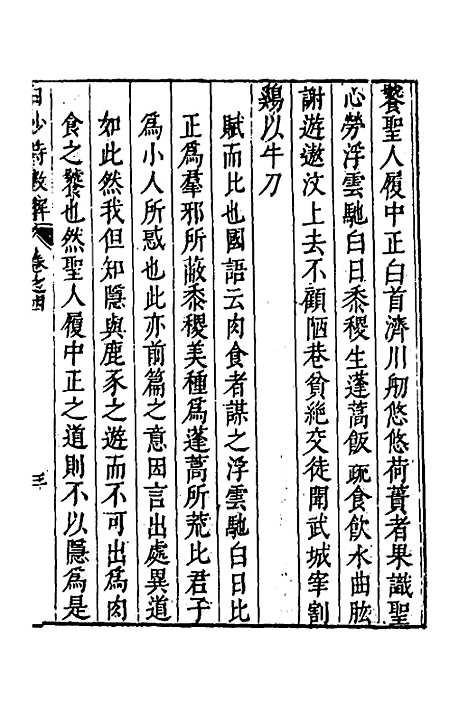 饕聖人履中正白首濟川舠悠悠荷蕢者果識聖
心勞浮雲馳白日黍稷生蓬蒿飯疏食飲水曲肱
謝遊遨汶上去不顧陋巷貧絶交徒聞武城宰割
鷄以牛刀
賦而比也國語云肉食者謀之浮雲馳白日比
正爲羣邪所蔽黍稷美種爲蓬蒿所荒比君子
爲小人所惑也此亦前篇之意因言出處異道
如此然我但知隱與鹿豕之遊而不可出爲肉
食之饕也然聖人履中正之道則不以隱爲是
卷之四
三